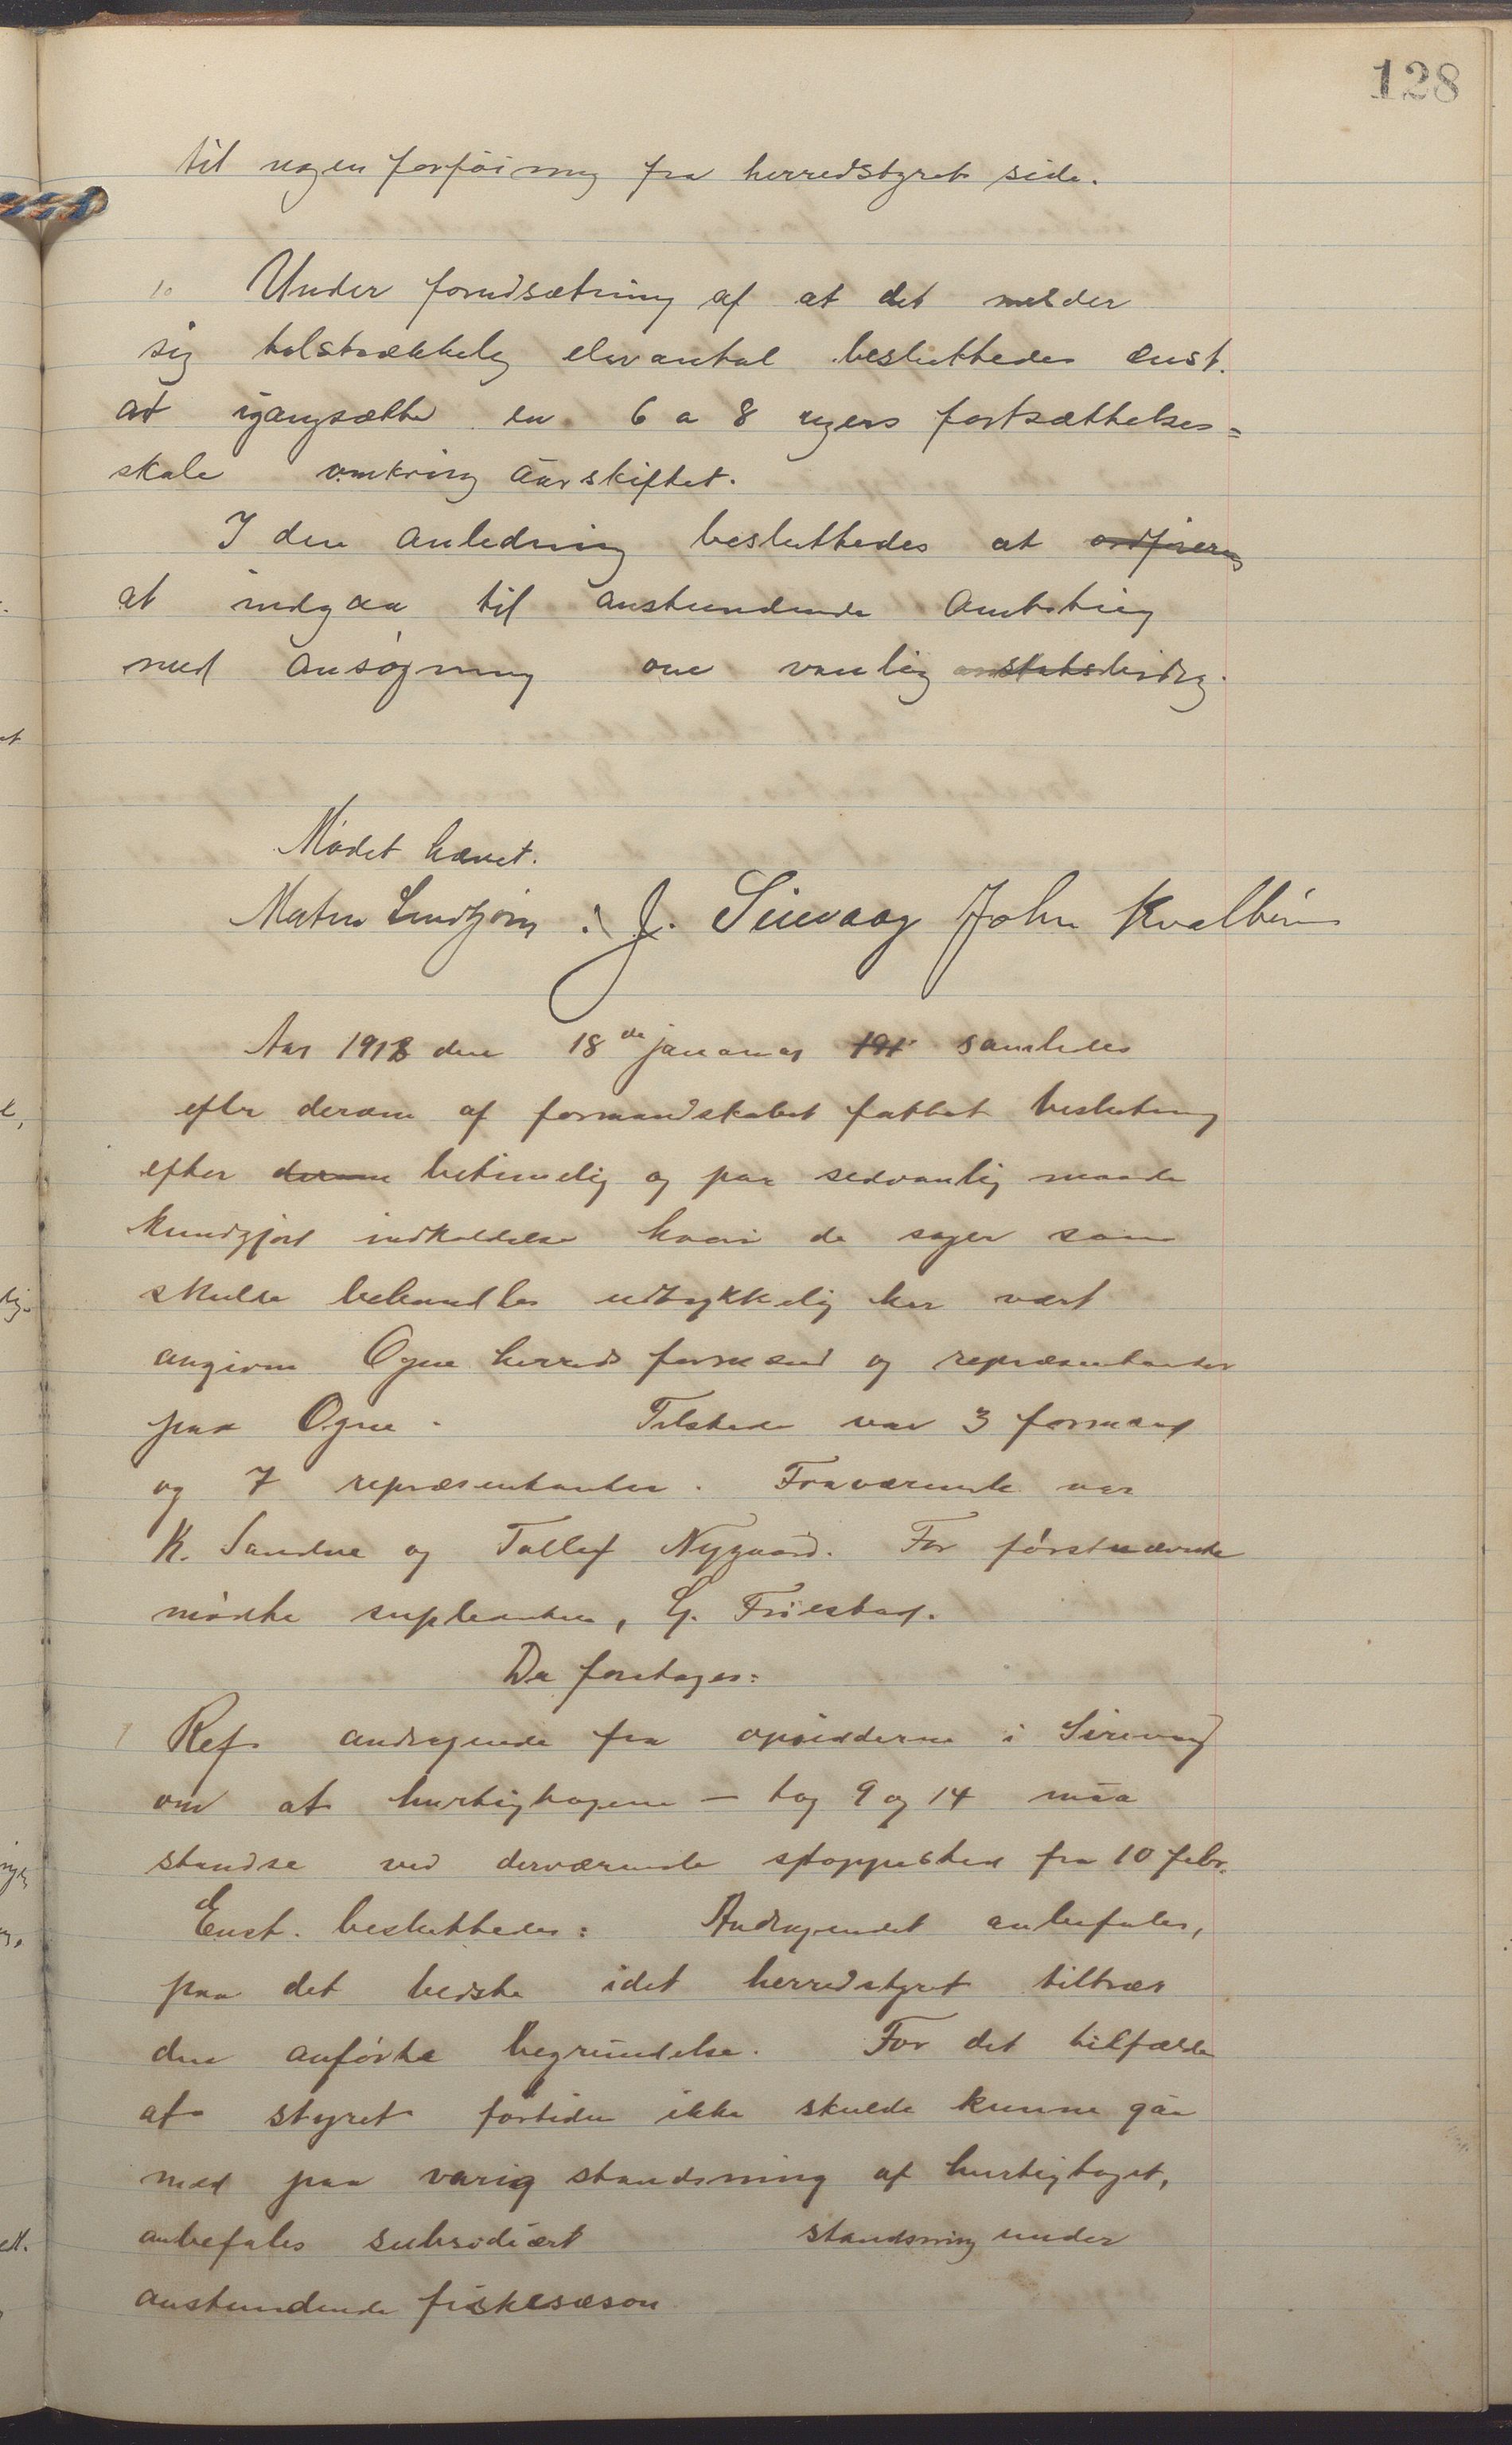 128
til nogen forföining fra herredstyrets side.
10 Under forudsætning af at det melder
sig tilstrækkelig elevantal besluttedes enst.
at igangsætte en 6 a 8 ugers fortsættelses=
skole omkring aarskiftet.
I den anledning besluttedes at
at indgaa til anstundende amtsting
med ansøgning om vanlig bidrag.
Mødet hævet.
J. Sirevaag John Kvalbein
Aar 1913 den 18de januar samledes
efter derom af formandskabet fattet beslutning
efter derom betimelig og paa sedvanlig maade
kundgjort indkaldelse hvori de sager som
skulde behandles udtrykkelig har vært
angivne Ogne herreds formænd og repræsentanter
paa Ogne. Tilstede var 3 formænd
og 7 repræsentanter. Fraværende var
K. Sandve og Tollef Nygaard. For förstnævnte
mødte supleanten, G. Fröestad.
Da foretoges:
1 Ref. andragende fra opsidderne i Sirevaag
om at hurtigtogene – tog 9 og 14 maa
standse ved derværende stoppested fra 10 febr.
Enst. besluttedes: Andragendet anbefales,
paa det bedste idet herredstyret tiltræder
den anførte begrundelse. For det tilfælde
at styret fortiden ikke skulde kunne gaa
med paa varig standsning af hurtigtoget,
anbefales subsidiært standsning under
anstundende fiskesæson